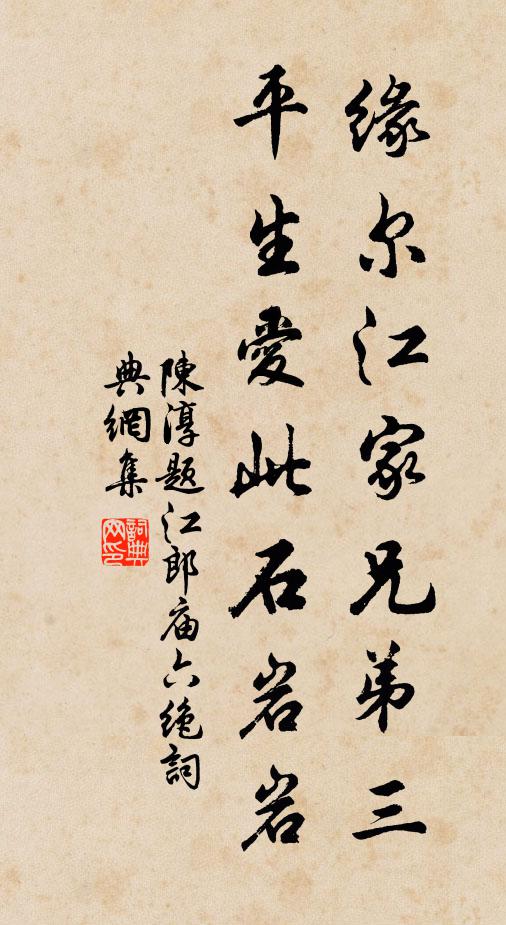 缘尔江家兄弟三
平生愛此石岩岩
陳淳题江郎庙六绝詞
典網集
詞典
网印